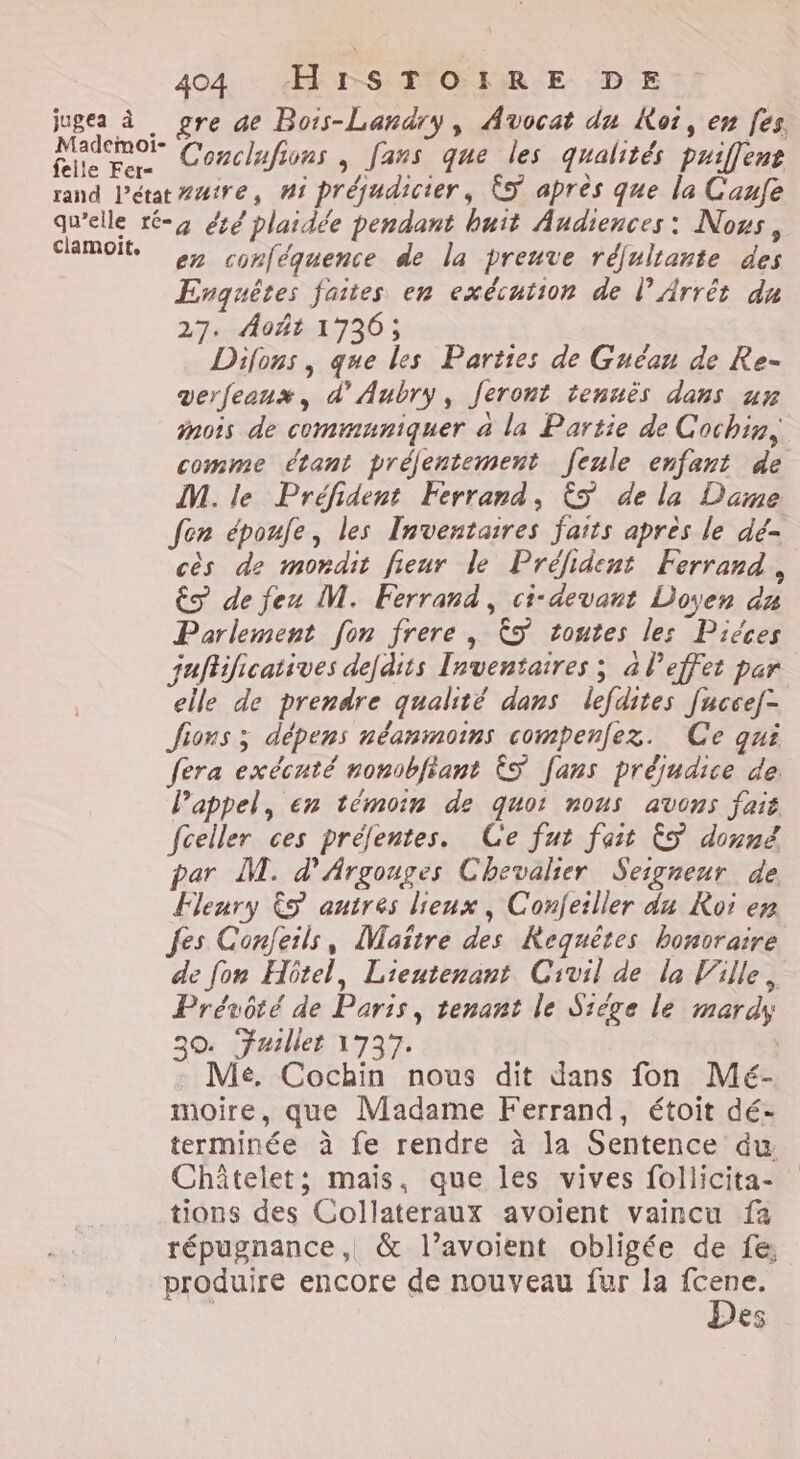 404 HISTOIRE DE
jugea à
Mademoi-
ſelle Fer-
rand l'état
qu'elle ré-
clamoit.
gre de Bois-Landry, Avocat du Roi, en ſes
Concluſions, ſans que les qualités puiſſent
nuire, ni préjudicier, & après que la Cauſe
a été plaidée pendant huit Audiences: Nous,
en conſéquence de la preuve réſultante des
Enquêtes faites en exécution de l'Arrêt du
27. Août 1736;
Diſons, que les Parties de Guéau de Re-
verſeaux, d'Aubry, ſeront tenuës dans un
mois de communiquer à la Partie de Cochin,
comme étant préſentement ſeule enfant de
M. le Préſident Ferrand, & de la Dame
ſon épouſe, les Inventaires faits après le dé-
cès de mondit ſieur le Préſident Ferrand,
& de feu M. Ferrand, ci-devant Doyen du
Parlement ſon frere, & toutes les Piéces
juſtificatives deſdits Inventaires; à l'effet par
elle de prendre qualité dans leſdites ſucceſ-
ſions; dépens néanmoins compenſez. Ce qui
ſera exécuté nonobſtant & ſans préjudice de
l'appel, en témoin de quoi nous avons fait
ſceller ces préſentes. Ce fut fait & donné
par M. d'Argouges Chevalier Seigneur de
Fleury & autres lieux, Conſeiller du Roi en
ſes Conſeils, Maître des Requêtes honoraire
de ſon Hôtel, Lieutenant Civil de la Ville,
Prévôté de Paris, tenant le Siége le mardy
30. Juillet 1737.
Me. Cochin nous dit dans ſon Mé-
moire, que Madame Ferrand, étoit dé-
terminée à ſe rendre à la Sentence du
Châtelet; mais, que les vives ſollicita-
tions des Collateraux avoient vaincu ſa
répugnance, & l'avoient obligée de ſe
produire encore de nouveau ſur la ſcene.
Des